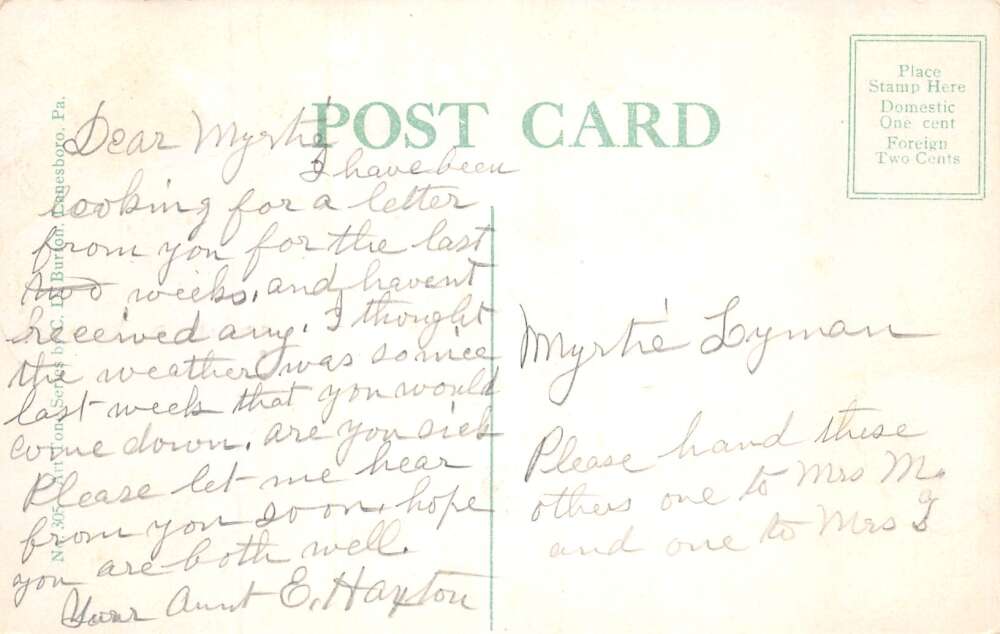 POST CARD
Place
Stamp Here
Domestic
One cent
Foreign
Two Cents
Dear Myrtie
I have been
looking for a letter
from you for the last
two weeks, and havent
received any. I thought
the weather was so nice
last week that you would
come down. are you sick
Please let me hear
from you soon. hope
you are both well.
Your Aunt E. Haxton
Myrtie Lyman
Please hand these
others one to Mrs M.
and one to Mrs
No. 305 Series by C. D. Burton, Lanesboro, Pa.